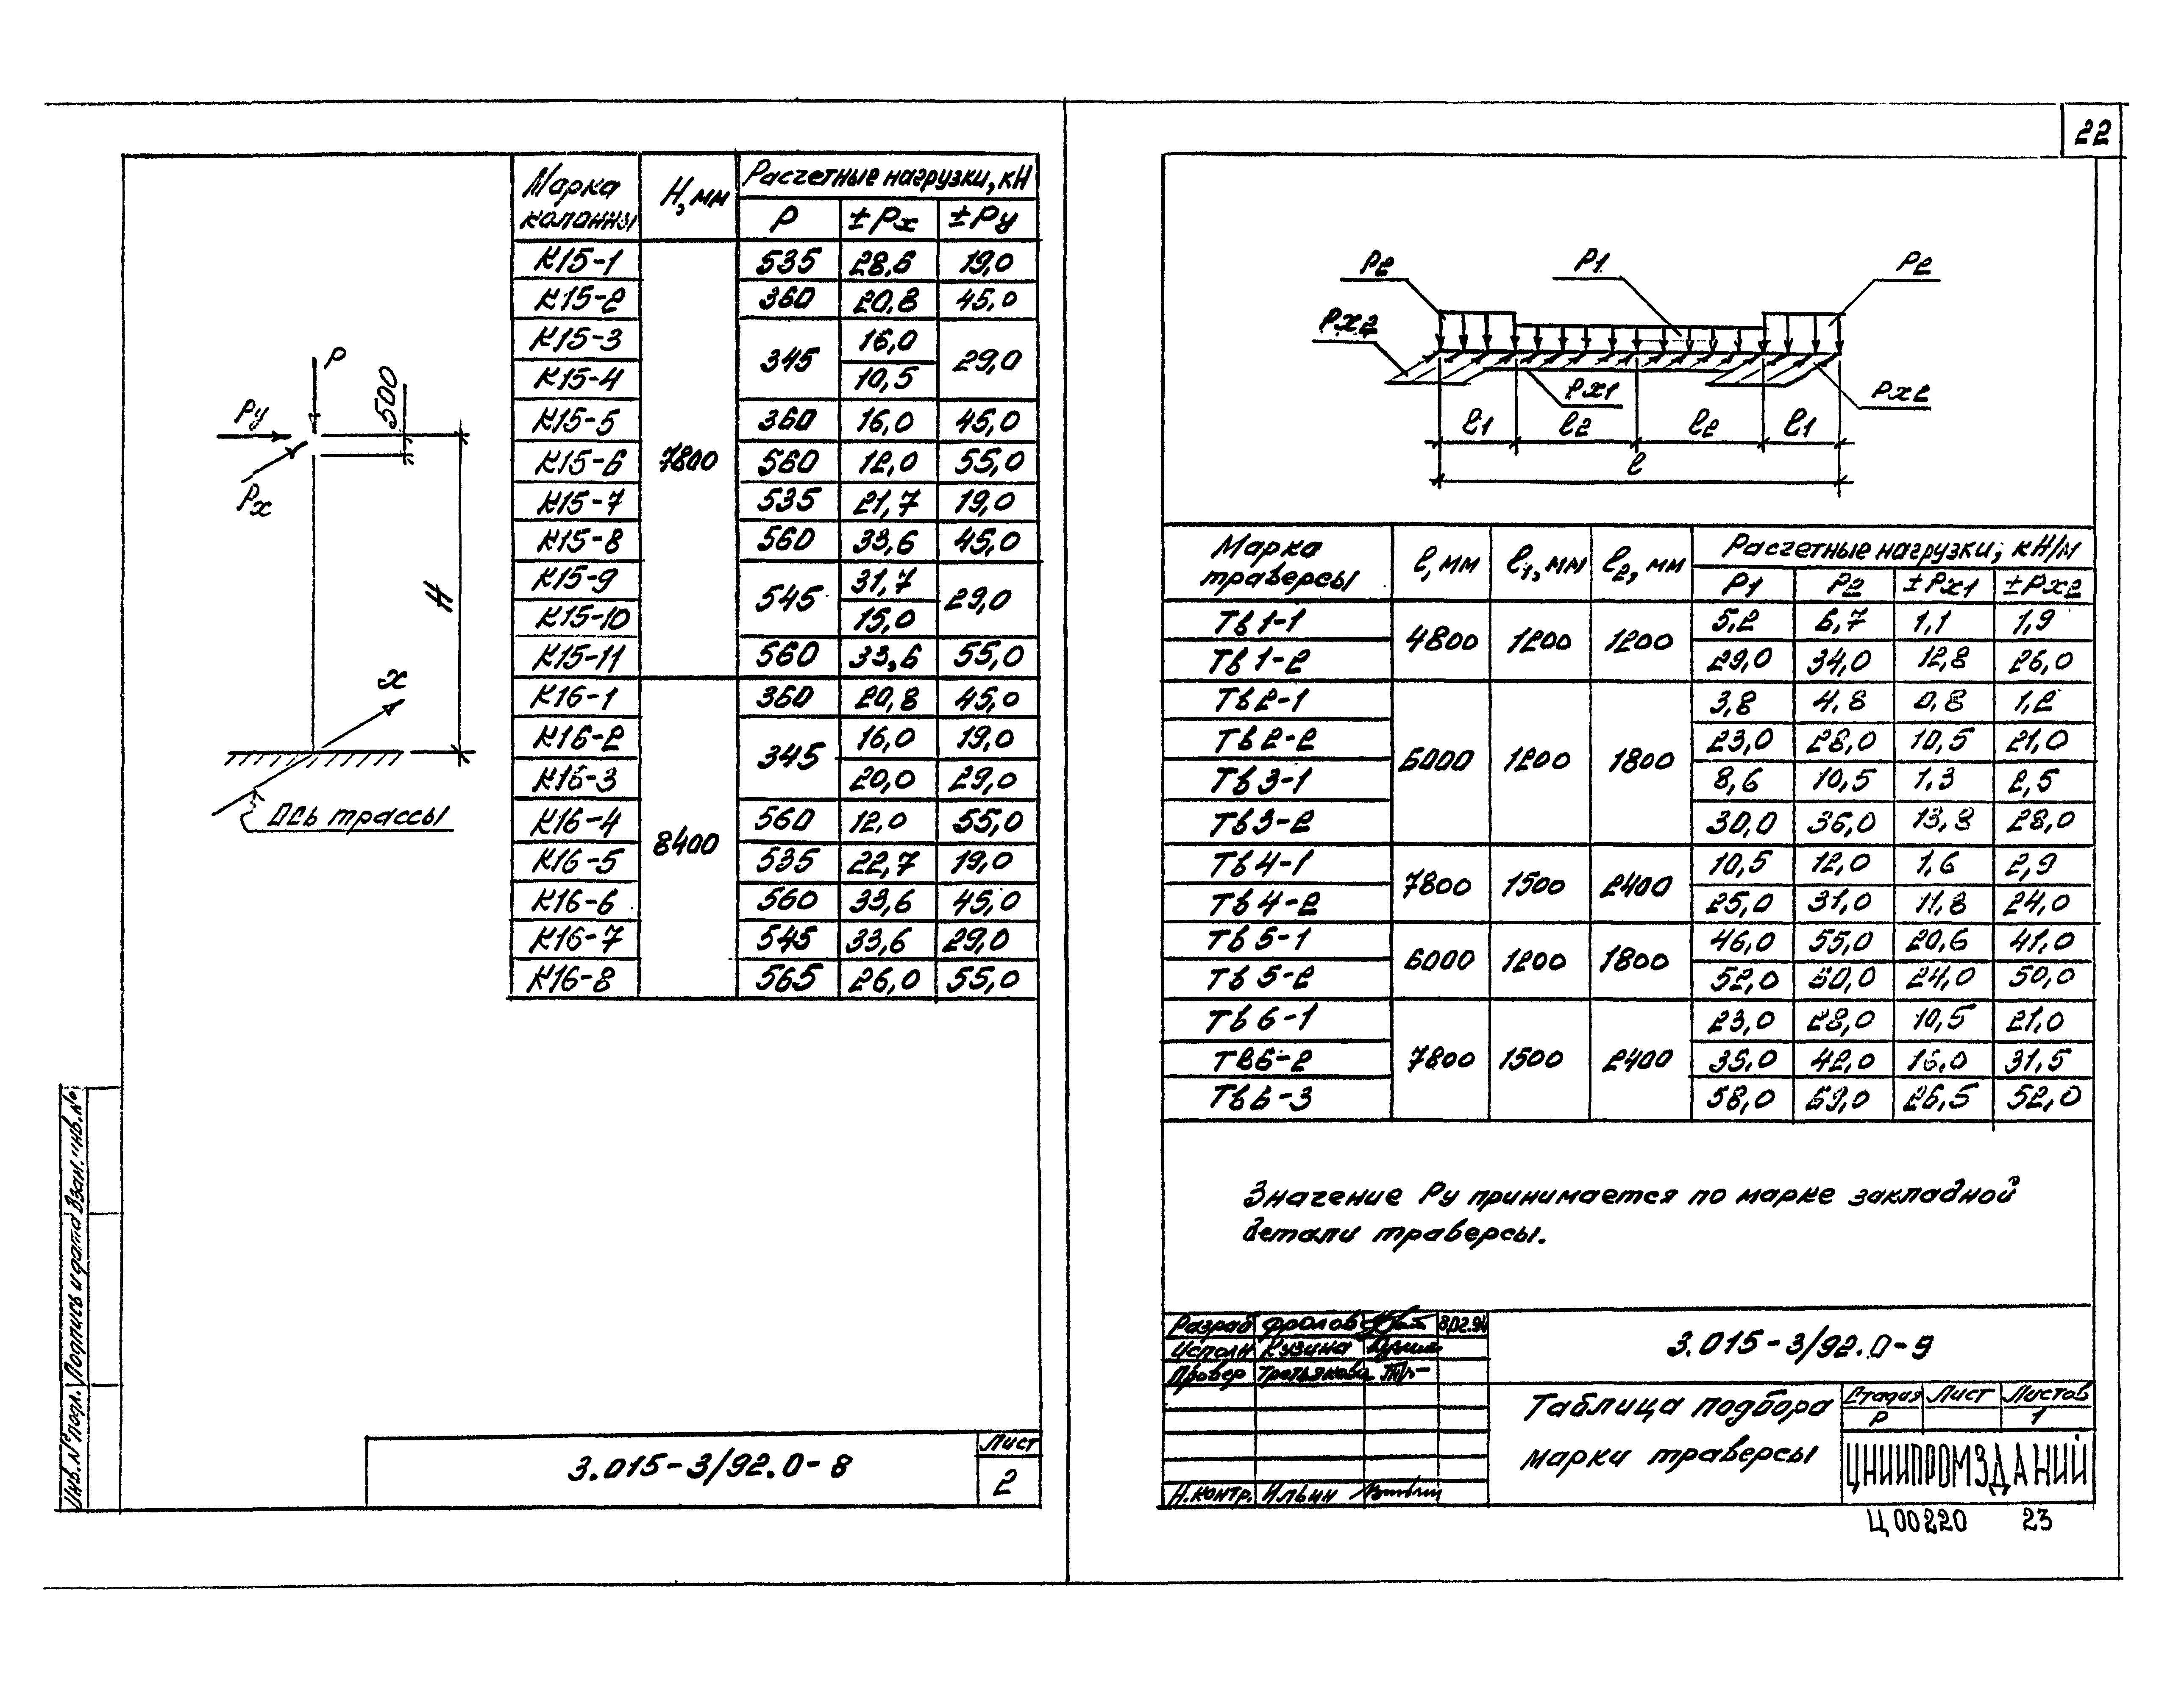 22
Марка колонны | H, мм | Расчетные нагрузки, кН
P | ±Px | ±Py
К15-1 | 7800 | 535 | 28,6 | 19,0
К15-2 | 360 | 20,8 | 45,0
К15-3 | 345 | 16,0 | 29,0
К15-4 | 10,5
К15-5 | 360 | 16,0 | 45,0
К15-6 | 560 | 12,0 | 55,0
К15-7 | 535 | 21,7 | 19,0
К15-8 | 560 | 33,6 | 45,0
К15-9 | 545 | 31,7 | 29,0
К15-10 | 15,0
К15-11 | 560 | 33,6 | 55,0
К16-1 | 8400 | 360 | 20,8 | 45,0
К16-2 | 345 | 16,0 | 19,0
К16-3 | 20,0 | 29,0
К16-4 | 560 | 12,0 | 55,0
К16-5 | 535 | 22,7 | 19,0
К16-6 | 560 | 33,6 | 45,0
К16-7 | 545 | 33,6 | 29,0
К16-8 | 565 | 26,0 | 55,0
P
500
Py
Px
H
x
Ось трассы
Инв. № подл. Подпись и дата Взам. инв. №
3.015-3/92.0-8
Лист
2
P2 P1 P2
Px2
Px1 Px2
ℓ1 ℓ2 ℓ2 ℓ1
ℓ
Марка траверсы | ℓ, мм | ℓ1, мм | ℓ2, мм | Расчетные нагрузки, кН/м
P1 | P2 | ±Px1 | ±Px2
Тв1-1 | 4800 | 1200 | 1200 | 5,2 | 6,7 | 1,1 | 1,9
Тв1-2 | 29,0 | 34,0 | 12,8 | 26,0
Тв2-1 | 6000 | 1200 | 1800 | 3,8 | 4,8 | 0,8 | 1,2
Тв2-2 | 23,0 | 28,0 | 10,5 | 21,0
Тв3-1 | 8,6 | 10,5 | 1,3 | 2,5
Тв3-2 | 30,0 | 36,0 | 13,8 | 28,0
Тв4-1 | 7800 | 1500 | 2400 | 10,5 | 12,0 | 1,6 | 2,9
Тв4-2 | 25,0 | 31,0 | 11,8 | 24,0
Тв5-1 | 6000 | 1200 | 1800 | 46,0 | 55,0 | 20,6 | 41,0
Тв5-2 | 52,0 | 60,0 | 24,0 | 50,0
Тв6-1 | 7800 | 1500 | 2400 | 23,0 | 28,0 | 10,5 | 21,0
Тв6-2 | 35,0 | 42,0 | 16,0 | 31,5
Тв6-3 | 58,0 | 69,0 | 26,5 | 52,0
Значение Py принимается по марке закладной
детали траверсы.
Разраб Фролов 8.02.94
Исполн Кузина
Провер Третьякова
Н.контр. Ильин
3.015-3/92.0-9
Таблица подбора
марки траверсы
Стадия Лист Листов
Р 1
ЦНИИПРОМЗДАНИЙ
Ц00220 23